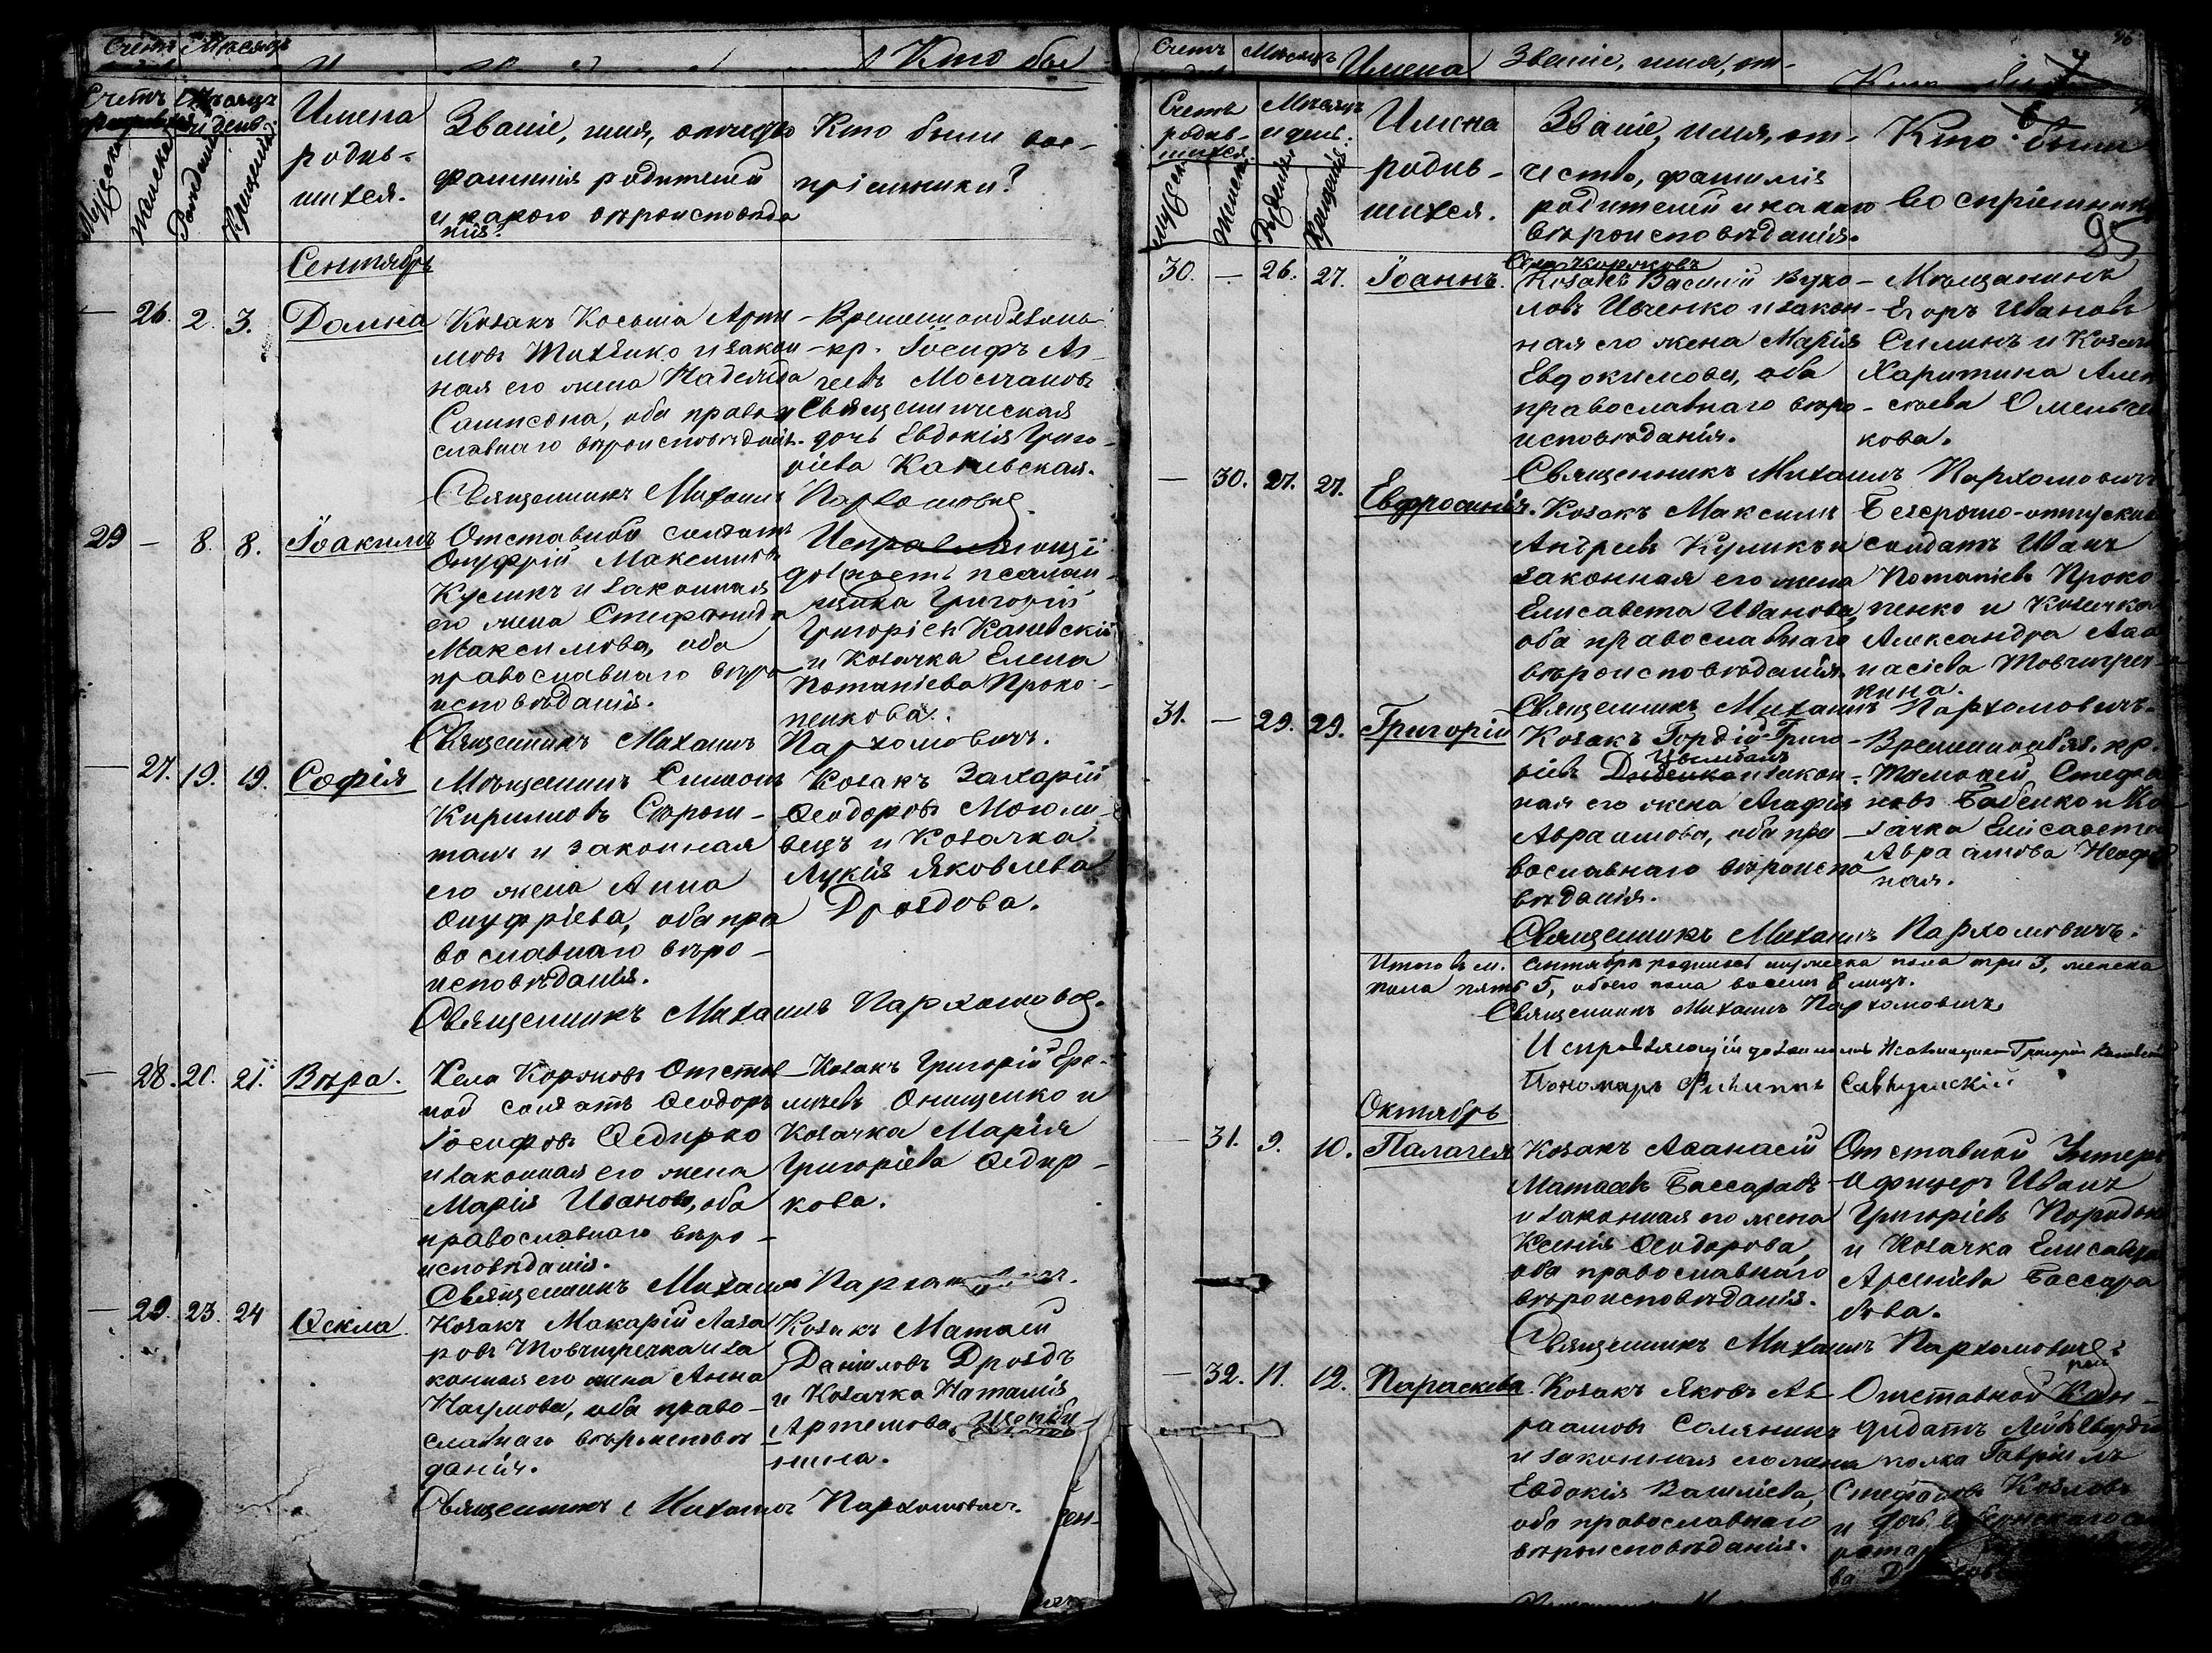 Счетъ Мѣсяцъ
Кто бы
Счетъ Мѣсяцъ
и день.
Мужеска Женска Рожденія Крещенія
Имена
родив-
шихся.
Званіе, имя, отчество
фамилія родителей
и какого вѣроисповѣда
нія?
Кто были вос-
пріемники?
Сентябрь
— 26. 2. 3. Домна
Козакъ Косьма
и закон-
ная его жена Надежда
Сампсона, оба право-
славнаго вѣроисповѣданія.
Временнообязан.
кр. Іосифъ
Молчановъ
и Священническая
дочь Евдокія Григо-
ріева Каневская.
Священникъ Михаилъ Пархомовичъ
29 — 8. 8. Іоакимъ
Отставной солдатъ
Онуфрій Максимовъ
Куликъ и законная
его жена Стефанида
Максимова, оба
православнаго вѣро-
исповѣданія.
Исправляющій
должность псалом-
щика Григорій
Григоріевъ Каневскій
и Козачка Елена
Потапіева Проко-
пенкова.
Священникъ Михаилъ Пархомовичъ.
— 27. 19. 19. Софія
Мѣщанинъ Симеонъ
Кирилловъ Сѣрош-
танъ и законная
его жена Анна
Онуфріева, оба пра
вославнаго вѣро-
исповѣданія.
Козакъ Захарій
Ѳеодоровъ Могили-
вецъ и Козачка
Лукія Яковлева
Дроздова.
Священникъ Михаилъ Пархомовичъ.
— 28. 20. 21. Вѣра.
Села Коряковъ Отстав-
ной солдатъ Ѳеодоръ
Іосифовъ Ѳедирко
и законная его жена
Марія Иванова, оба
православнаго вѣро-
исповѣданія.
Козакъ Григорій Ере-
мѣевъ Онищенко и
Козачка Марія
Григоріева Ѳедир-
кова.
Священникъ Михаилъ Пархомовичъ.
— 29. 23. 24 Ѳекла.
Козакъ Макарій Лаза
ровъ Товчигречка и за
конная его жена Анна
Наумова, оба право-
славнаго вѣроисповѣ
данія.
Козакъ Матѳей
Даніиловъ Дроздъ
и Козачка Наталія
Артемова
нина.
Священникъ Михаилъ Пархомовичъ.
Сен-
Счетъ Мѣсяцъ Имена Званіе, имя, от-
96
Счетъ
родив-
шихся.
Мѣсяцъ
и день.
Мужеск. Женска Рожденія Крещенія
Имена
родив-
шихся.
Званіе, имя, от-
чество, фамилія
родителей и какого
вѣроисповѣданія.
Кто были
воспріемники
95
30. — 26. 27. Іоаннъ.
Села Коряковъ
Козакъ Василій Вуко-
ловъ Ивченко и закон-
ная его жена Марія
Евдокимова, оба
православнаго вѣро-
исповѣданія.
Мѣщанинъ
Егоръ Ивановъ
Силинъ и Козач
Харитина Алек
сѣева Омельчен
кова.
Священникъ Михаилъ Пархомовичъ
— 30. 27. 27. Евфросинія.
Козакъ Максимъ
Андреевъ Куликъ и
законная его жена
Елисавета Иванова,
оба православнаго
вѣроисповѣданія.
Безсрочно-отпускной
солдатъ Иванъ
Потапіевъ Проко-
пенко и Козачка
Александра Аѳа
насіева Товчигреч-
кина.
Священникъ Михаилъ Пархомовичъ.
31. — 29. 29. Григорій
Козакъ Гордій Григо-
ріевъ и закон-
ная его жена Агафія
Авраамова, оба пра-
вославнаго вѣроиспо
вѣданія.
Временнообяз. кр.
Тимоѳей Стефа
новъ Бабенко и Ко
зачка Елисавета
Авраамова
ная.
Священникъ Михаилъ Пархомовичъ.
Итого въ м. Сентябрѣ родилось мужеска пола три 3, женска
пола пять 5, обоего пола восемь 8 лицъ.
Священникъ Михаилъ Пархомовичъ
Исправляющій должность Псаломщика Григорій Каневскій
Пономарь Филиппъ
Октябрь
— 31. 9. 10. Палагея
Козакъ Аѳанасій
Матѳеевъ Бассарабъ
и законная его жена
Ксенія Ѳеодорова,
оба православнаго
вѣроисповѣданія.
Отставной Унтеръ
Офицеръ Иванъ
Григоріевъ
и Козачка Елисавета
Арсеніева Бассара
бова.
Священникъ Михаилъ Пархомовичъ
— 32. 11. 12. Параскева
Козакъ Яковъ Ав-
раамовъ Соляникъ
и законная его жена
Евдокія Василіева,
оба православнаго
вѣроисповѣданія.
Отставной Кан-
дидатъ
полка Гавріилъ
Стефановъ Козловъ
и дочь